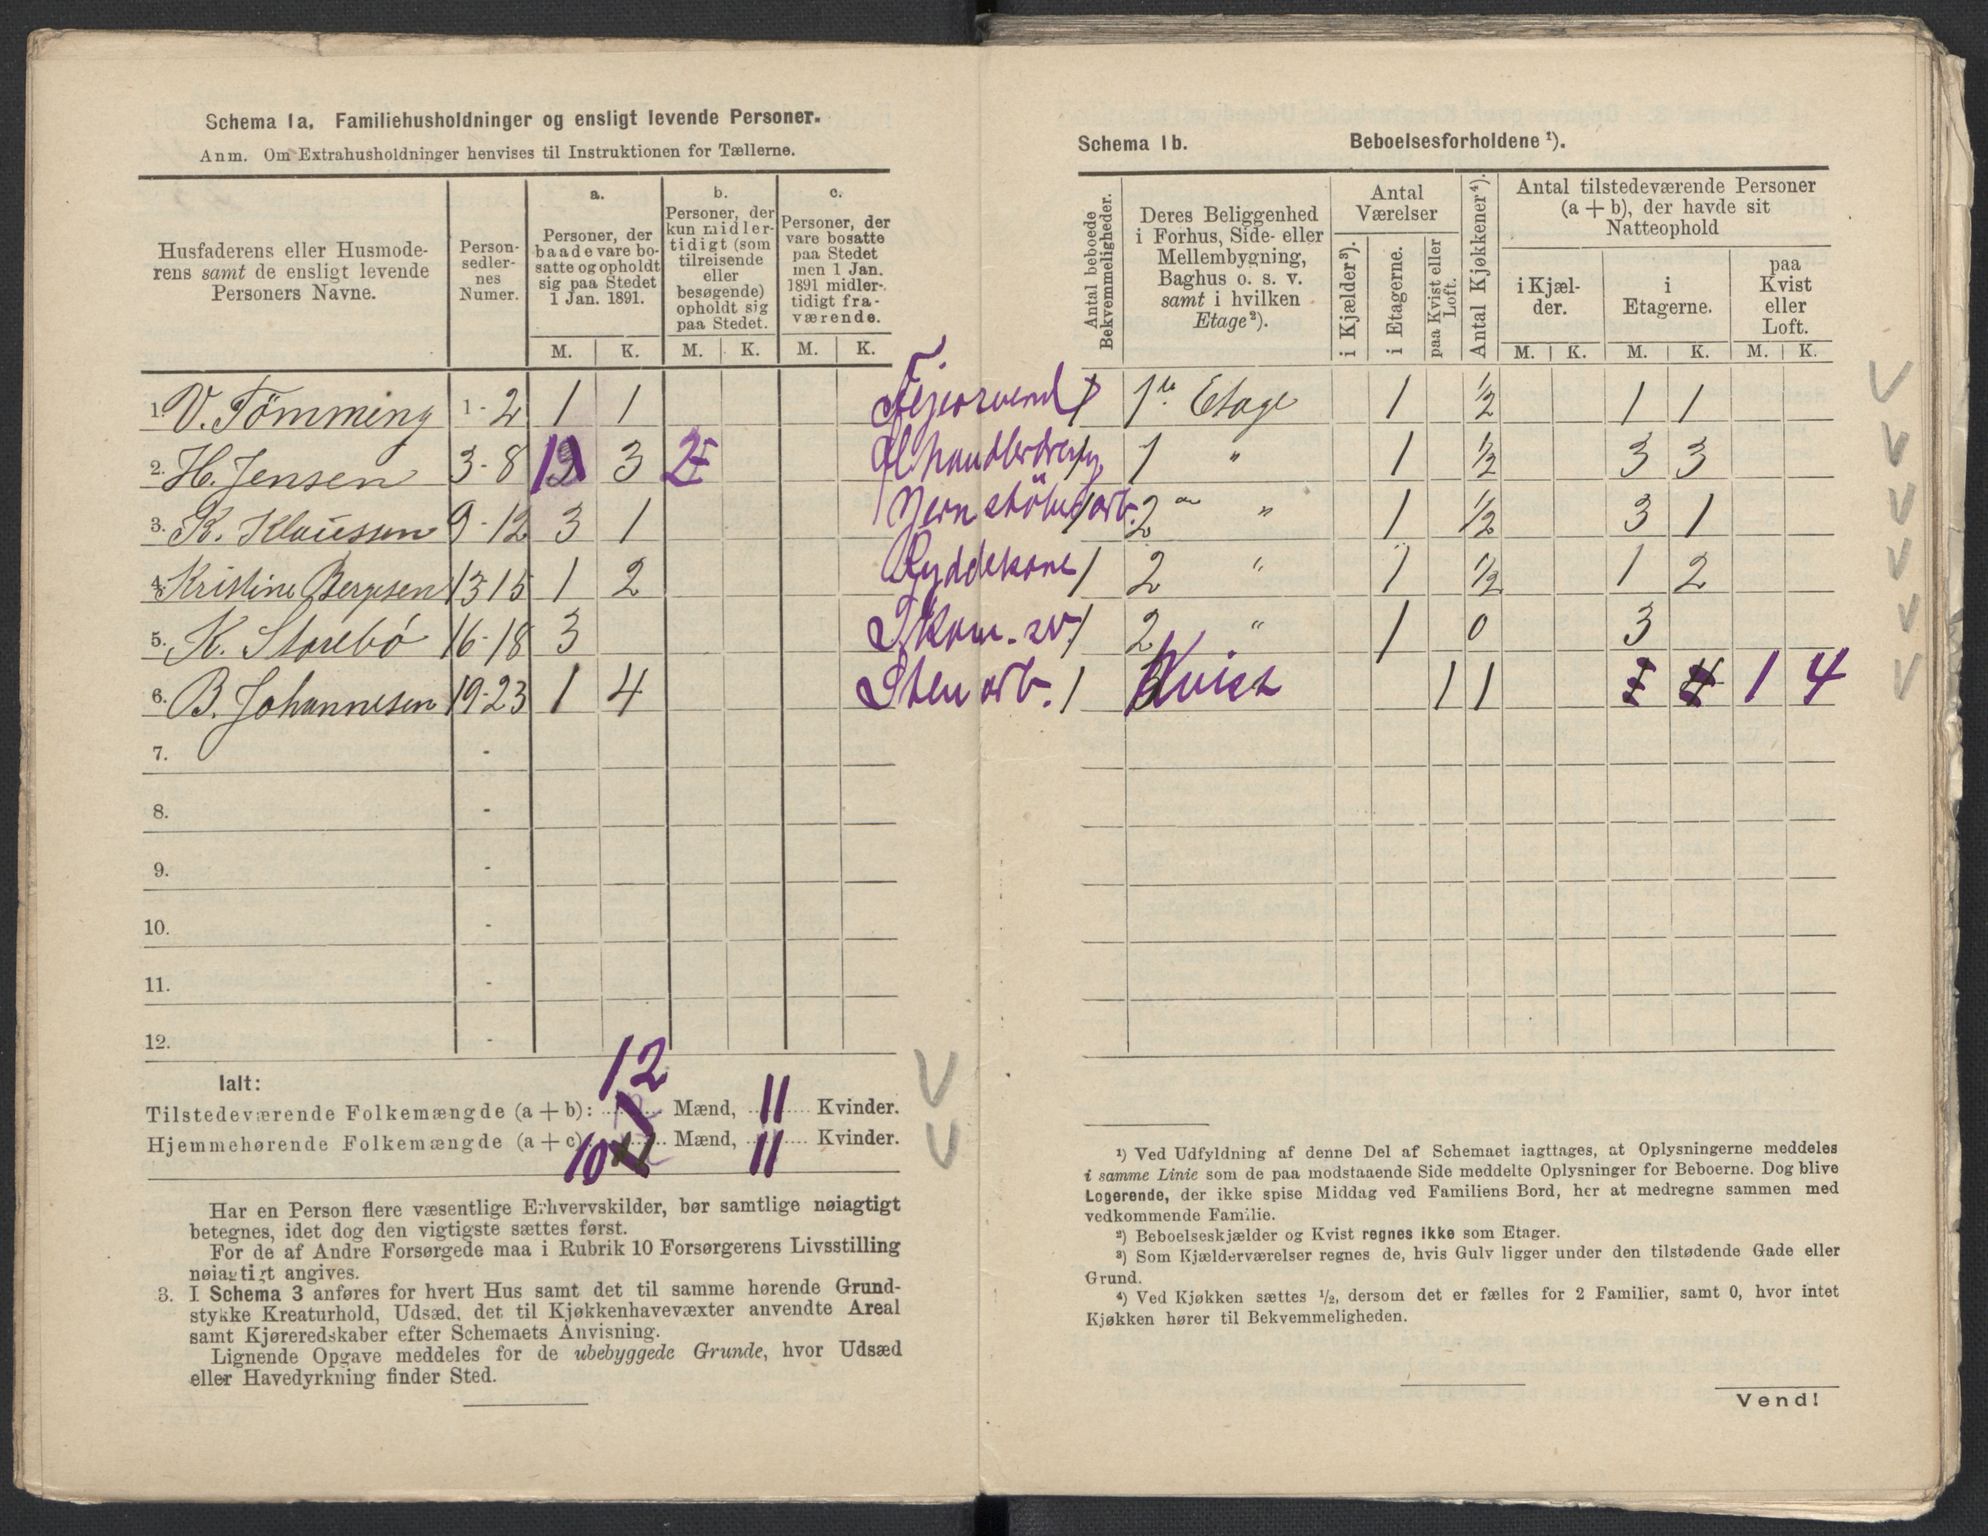 Schema 1a. Familiehusholdninger og ensligt levende Personer.
Anm. Om Extrahusholdninger henvises til Instruktionen for Tællerne.
Husfaderens eller Husmoderens samt de ensligt levende Personers Navne.
Personsedlernes Numer.
a.
Personer, der baade vare bosatte og opholdt sig paa Stedet 1 Jan. 1891.
b.
Personer, der kun midlertidigt (som tilreisende eller besøgende) opholdt sig paa Stedet.
c.
Personer, der vare bosatte paa Stedet men 1 Jan. 1891 midlertidigt fraværende.
M. K. M. K. M. K.
1. V. Tømming 1-2 1 1
2. H. Jensen 3-8 1 3 2
3. K. Klaussen 9-12 3 1
4. Kristine Bergesen 13-15 1 2
5. K. Storebø 16-18 3
6. B. Johannesen 19-23 1 4
7. -
8. -
9. -
10. -
11. -
12. -
Ialt:
12
Tilstedeværende Folkemængde (a + b): Mænd, 11 Kvinder.
Hjemmehørende Folkemængde (a + c) 10 Mænd, 11 Kvinder.
Har en Person flere væsentlige Erhvervskilder, bør samtlige nøiagtigt
betegnes, idet dog den vigtigste sættes først.
For de af Andre Forsørgede maa i Rubrik 10 Forsørgerens Livsstilling
nøiagtigt angives.
3. I Schema 3 anføres for hvert Hus samt det til samme hørende Grund-
stykke Kreaturhold, Udsæd, det til Kjøkkenhavevæxter anvendte Areal
samt Kjøreredskaber efter Schemaets Anvisning.
Lignende Opgave meddeles for de ubebyggede Grunde, hvor Udsæd
eller Havedyrkning finder Sted.
Schema 1b. Beboelsesforholdene ¹).
Antal beboede Bekvemmeligheder.
Deres Beliggenhed i Forhus, Side- eller Mellembygning, Baghus o. s. v. samt i hvilken Etage ²).
Antal Værelser
i Kjælder ³).
i Etagerne.
paa Kvist eller Loft.
Antal Kjøkkener ⁴).
Antal tilstedeværende Personer (a + b), der havde sit Natteophold
i Kjælder.
i Etagerne.
paa Kvist eller Loft.
M. K. M. K. M. K.
Fejersvend 1 1ste Etage 1 ½ 1 1
1 1 " 1 ½ 3 3
Jernstöberarb. 1 2den " 1 ½ 3 1
Ryddekone 1 2 " 1 ½ 1 2
1 2 " 1 0 3
Stenarb. 1 Kvist 1 1 1 4
¹) Ved Udfyldning af denne Del af Schemaet iagttages, at Oplysningerne meddeles
i samme Linie som de paa modstaaende Side meddelte Oplysninger for Beboerne. Dog blive
Logerende, der ikke spise Middag ved Familiens Bord, her at medregne sammen med
vedkommende Familie.
²) Beboelseskjælder og Kvist regnes ikke som Etager.
³) Som Kjælderværelser regnes de, hvis Gulv ligger under den tilstødende Gade eller
Grund.
⁴) Ved Kjøkken sættes ½, dersom det er fælles for 2 Familier, samt 0, hvor intet
Kjøkken hører til Bekvemmeligheden.
Vend!